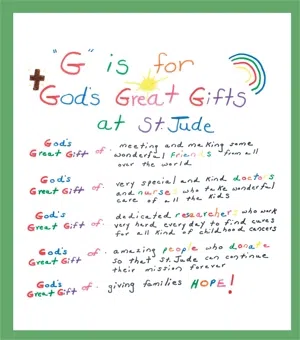 "G" is for
God's Great Gifts
at St. Jude
God's Great Gift of . meeting and making some
wonderful friends from all
over the world
God's Great Gift of . very special and kind doctors
and nurses who take wonderful
care of all the kids
God's Great Gift of . dedicated researchers who work
very hard everyday to find cures
for all kind of childhood cancers
God's Great Gift of . amazing people who donate
so that St. Jude can continue
their mission forever
God's Great Gift of . giving families HOPE!